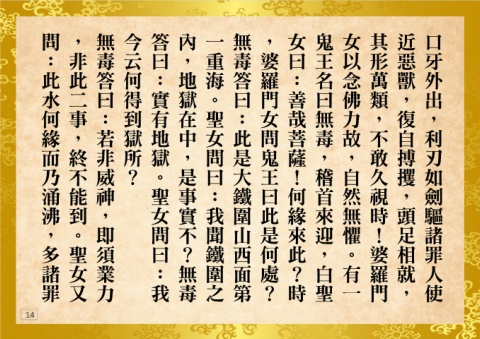 口牙外出，利刃如劍驅諸罪人使
近惡獸，復自搏攫，頭足相就，
其形萬類，不敢久視時！婆羅門
女以念佛力故，自然無懼。有一
鬼王名曰無毒，稽首來迎，白聖
女曰：善哉菩薩！何緣來此？時
，婆羅門女問鬼王曰此是何處？
無毒答曰：此是大鐵圍山西面第
一重海。聖女問曰：我聞鐵圍之
內，地獄在中，是事實不？無毒
答曰：實有地獄。聖女問曰：我
今云何得到獄所？
無毒答曰：若非威神，即須業力
，非此二事，終不能到。聖女又
問：此水何緣而乃涌沸，多諸罪
14